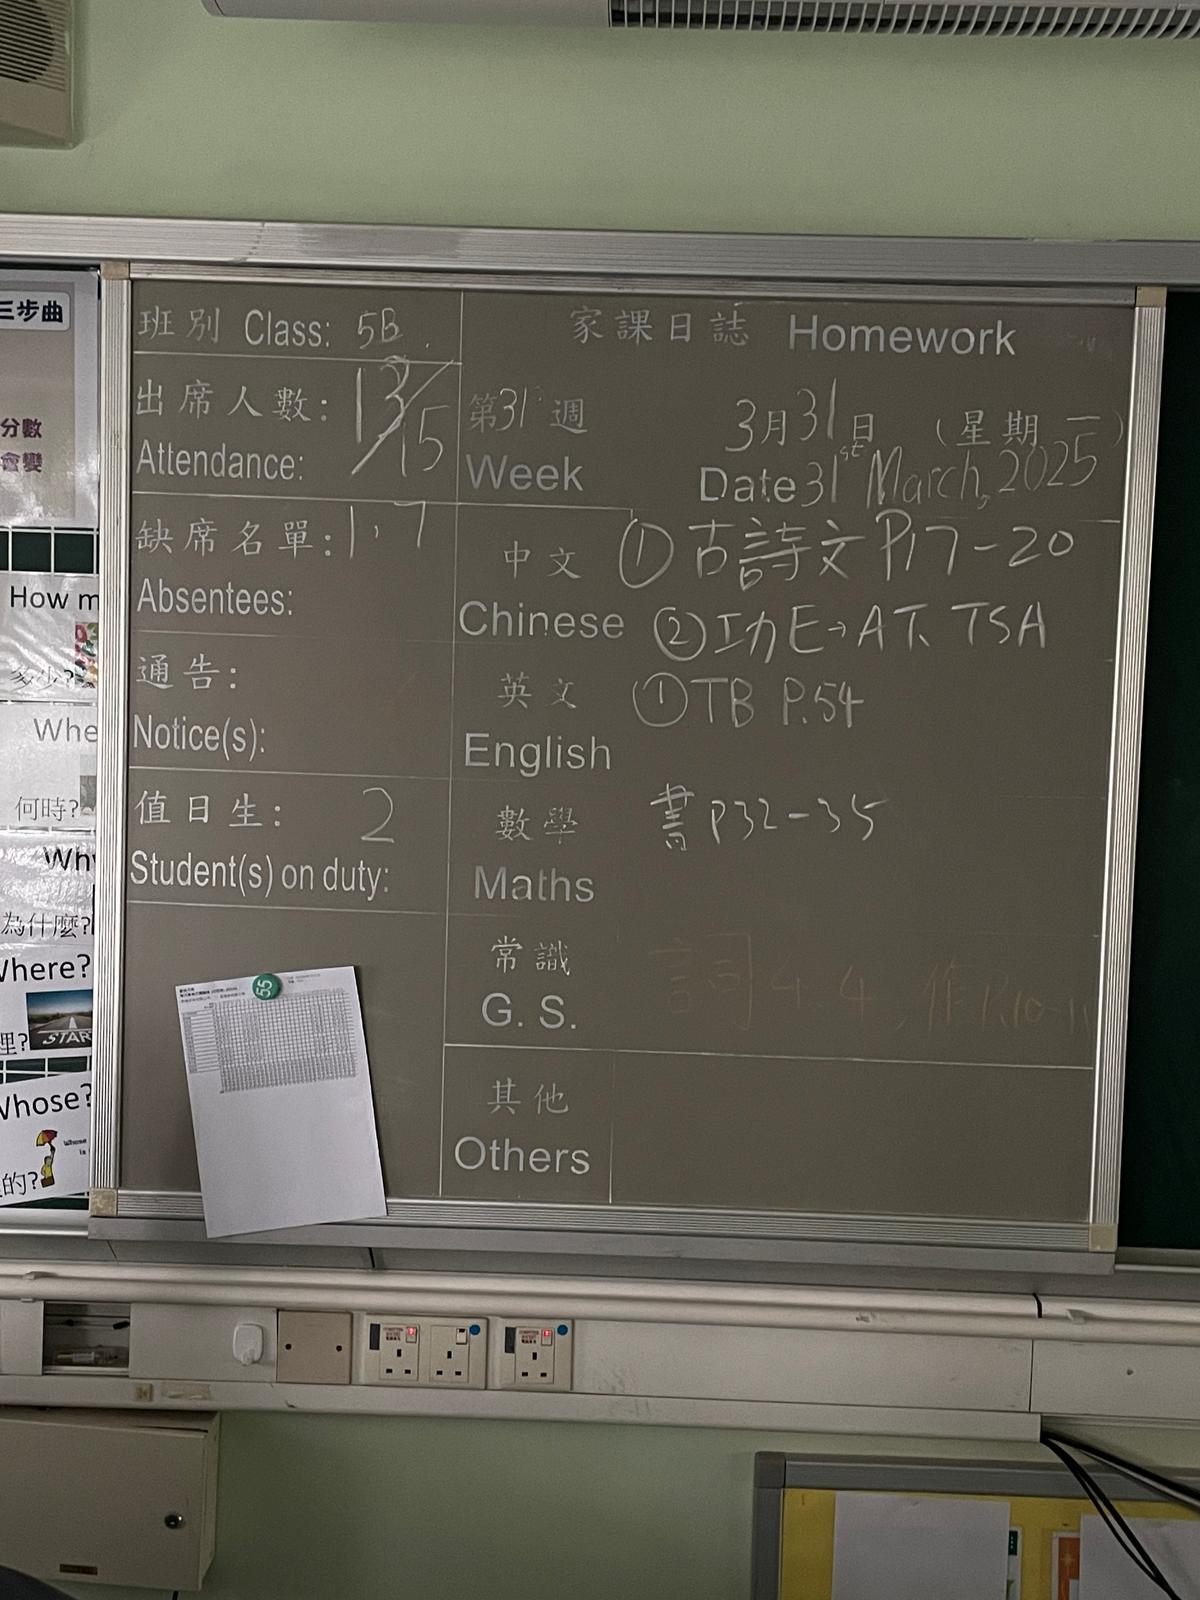 三步曲
分數
會變
How m
多少?
Whe
何時?
Why
為什麼?
Where?
START
裡?
Whose?
的?
班別 Class: 5B.
出席人數: 13/15
Attendance:
缺席名單: 1, 7
Absentees:
通告:
Notice(s):
值日生: 2
Student(s) on duty:
55
家課日誌 Homework
第31週 3月31日 (星期一)
Week Date 31st March, 2025
中文 ① 古詩文 P.17-20
Chinese ② 功E→AT、TSA
英文 ① TB P.54
English
數學 書 P32-35
Maths
常識
G. S.
其他
Others